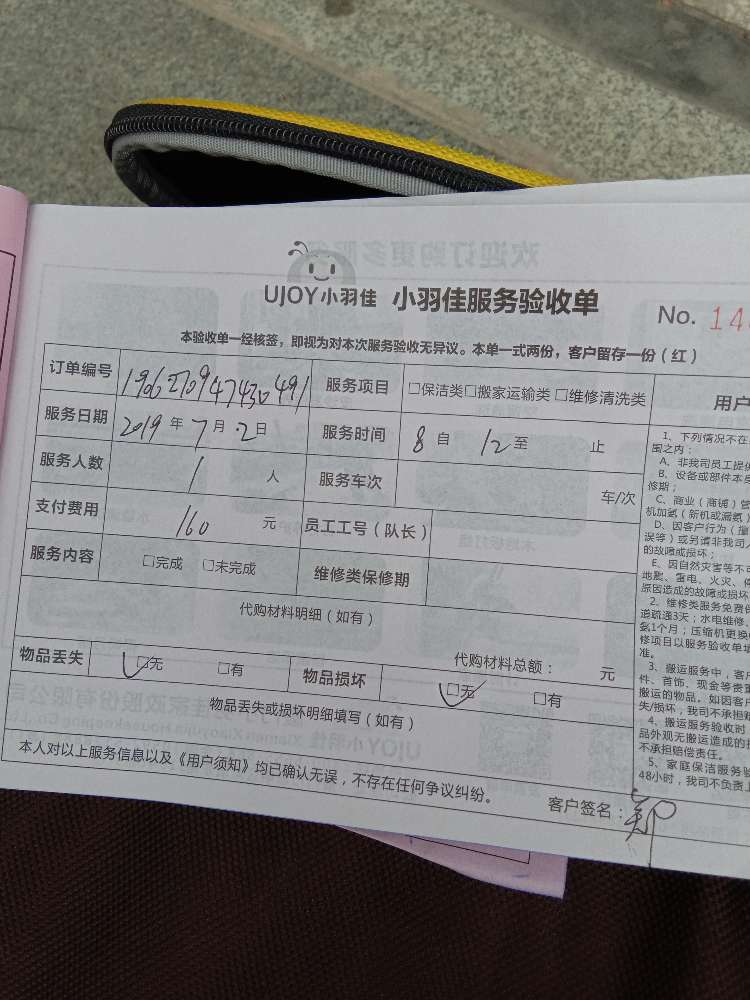 UJOY小羽佳 小羽佳服务验收单
No. 14
本验收单一经核签，即视为对本次服务验收无异议。本单一式两份，客户留存一份（红）
订单编号 190627094743491 服务项目 □保洁类□搬家运输类□维修清洗类
服务日期 2019年7月2日 服务时间 8自 12至 止
服务人数 1 人 服务车次 车/次
支付费用 160 元 员工工号（队长）
服务内容 □完成 □未完成 维修类保修期
代购材料明细（如有）
代购材料总额： 元
物品丢失 ☑无 □有 物品损坏 ☑无 □有
物品丢失或损坏明细填写（如有）
本人对以上服务信息以及《用户须知》均已确认无误，不存在任何争议纠纷。
客户签名：郑
用户
1、下列情况不在
围之内：
A、非我司员工提供
B、设备或部件本身
修期；
C、商业（商铺）管
机加氢（新机或漏氨）
D、因客户行为（撞
误等）或另请非我司人
的故障或损坏；
E、因自然灾害等不可
地震、雷电、火灾、停
原因造成的故障或损坏
2、维修类服务免费保
道疏通3天；水电维修、
氨1个月；压缩机更换
修项目以服务验收单填
准。
3、搬运服务中，客户
件、首饰、现金等贵重
搬运的物品。如因客户
失/损坏，我司不承担赔
4、搬运服务验收时
品外观无搬运造成的损
不承担赔偿责任。
5、家庭保洁服务验
48小时，我司不负责上